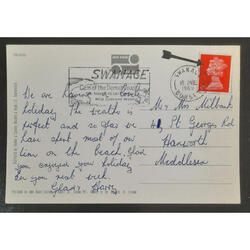 SWANAGE
Gem of the Dorset Coast
SWANAGE
We are having a lovely
holiday. The weather is
perfect and so far we
have spent most of our
time on the beach. Glad
you enjoyed your holiday
See you next week.
Mr & Mrs Millbank
St Georges Rd
Hanworth
Middlesex